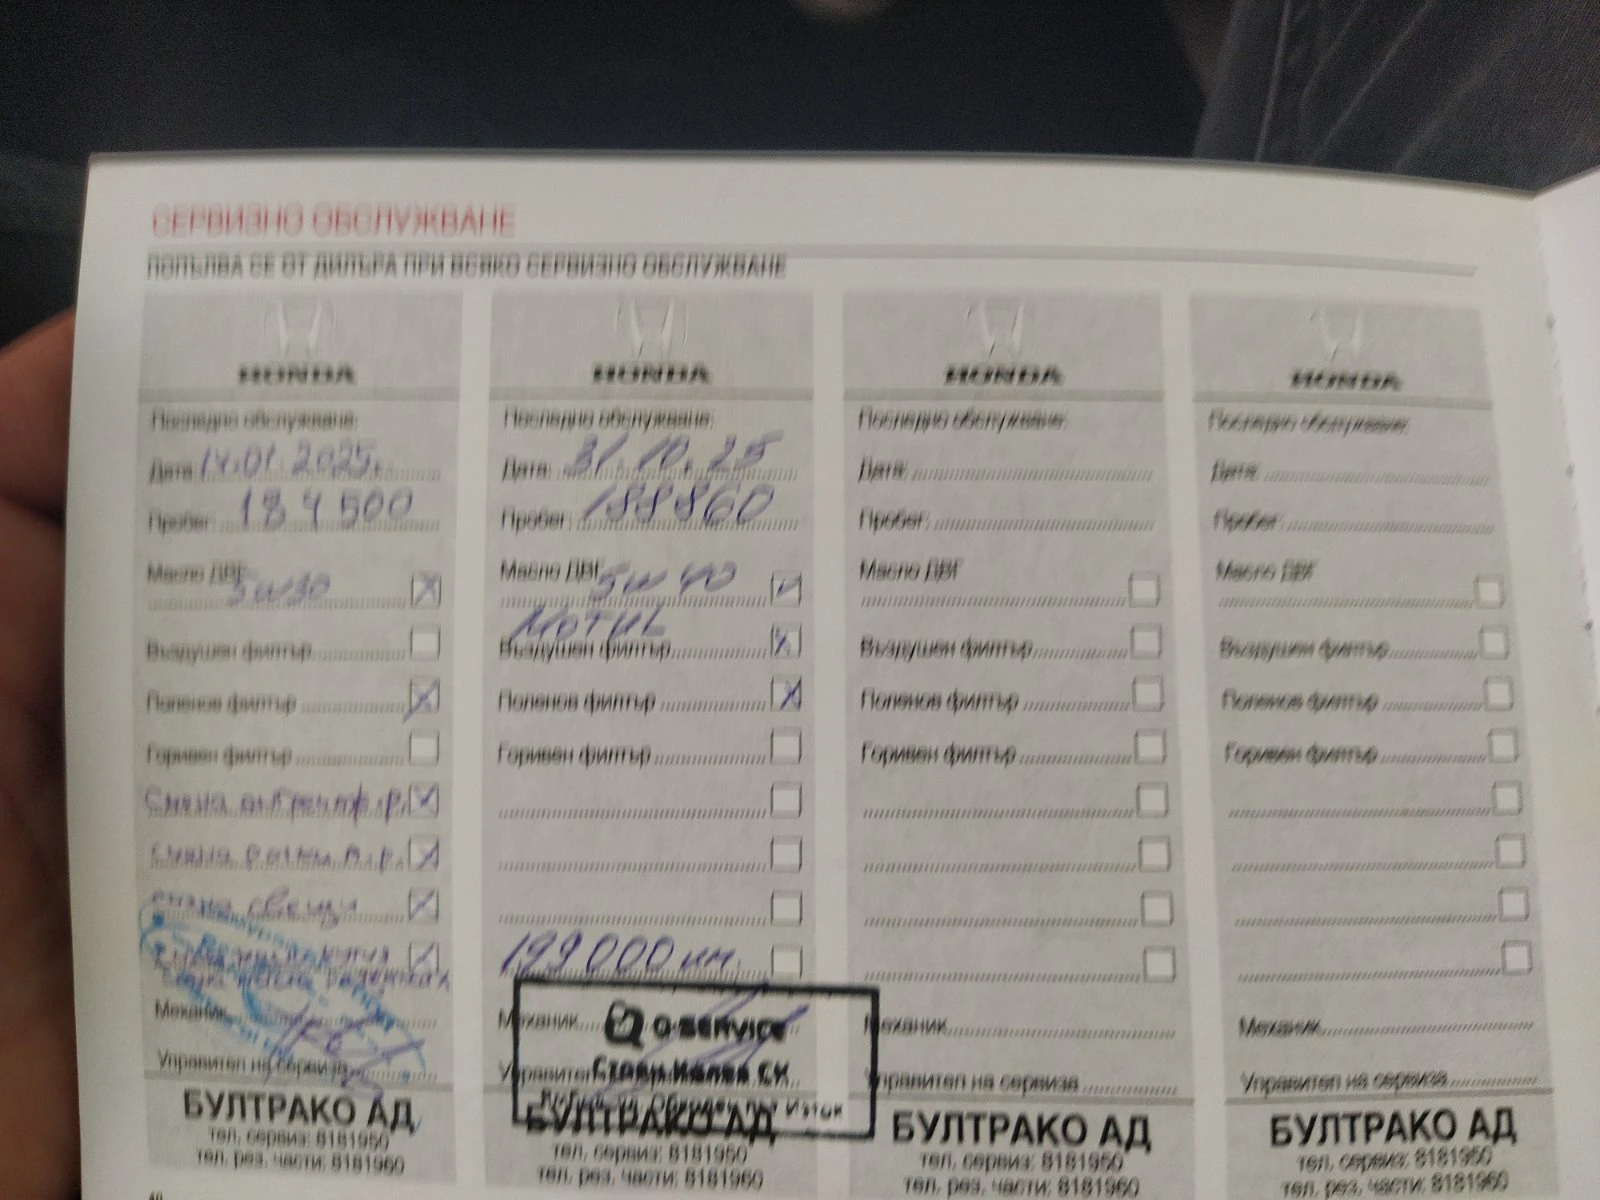 СЕРВИЗНО ОБСЛУЖВАНЕ
ПОПЪЛВА СЕ ОТ ДИЛЪРА ПРИ ВСЯКО СЕРВИЗНО ОБСЛУЖВАНЕ
HONDA
Последно обслужване:
Дата: 14.01.2025.
Пробег: 184500
Масло ДВГ
5w30
Въздушен филтър
Поленов филтър
Горивен филтър
Смяна
Смяна
смяна свещи
Механик
Управител на сервиза
БУЛТРАКО АД
тел. сервиз: 8181950
тел. рез. части: 8181960
HONDA
Последно обслужване:
Дата: 31.10.25
Пробег: 188860
Масло ДВГ 5w40
MOTUL
Въздушен филтър
Поленов филтър
Горивен филтър
199000 км.
Механик
Q-SERVICE
Управител
БУЛТРАКО АД
тел. сервиз: 8181950
тел. рез. части: 8181960
HONDA
Последно обслужване:
Дата:
Пробег:
Масло ДВГ
Въздушен филтър
Поленов филтър
Горивен филтър
Механик
Управител на сервиза
БУЛТРАКО АД
тел. сервиз: 8181950
тел. рез. части: 8181960
HONDA
Последно обслужване:
Дата:
Пробег:
Масло ДВГ
Въздушен филтър
Поленов филтър
Горивен филтър
Механик
Управител на сервиза
БУЛТРАКО АД
тел. сервиз: 8181950
тел. рез. части: 8181960